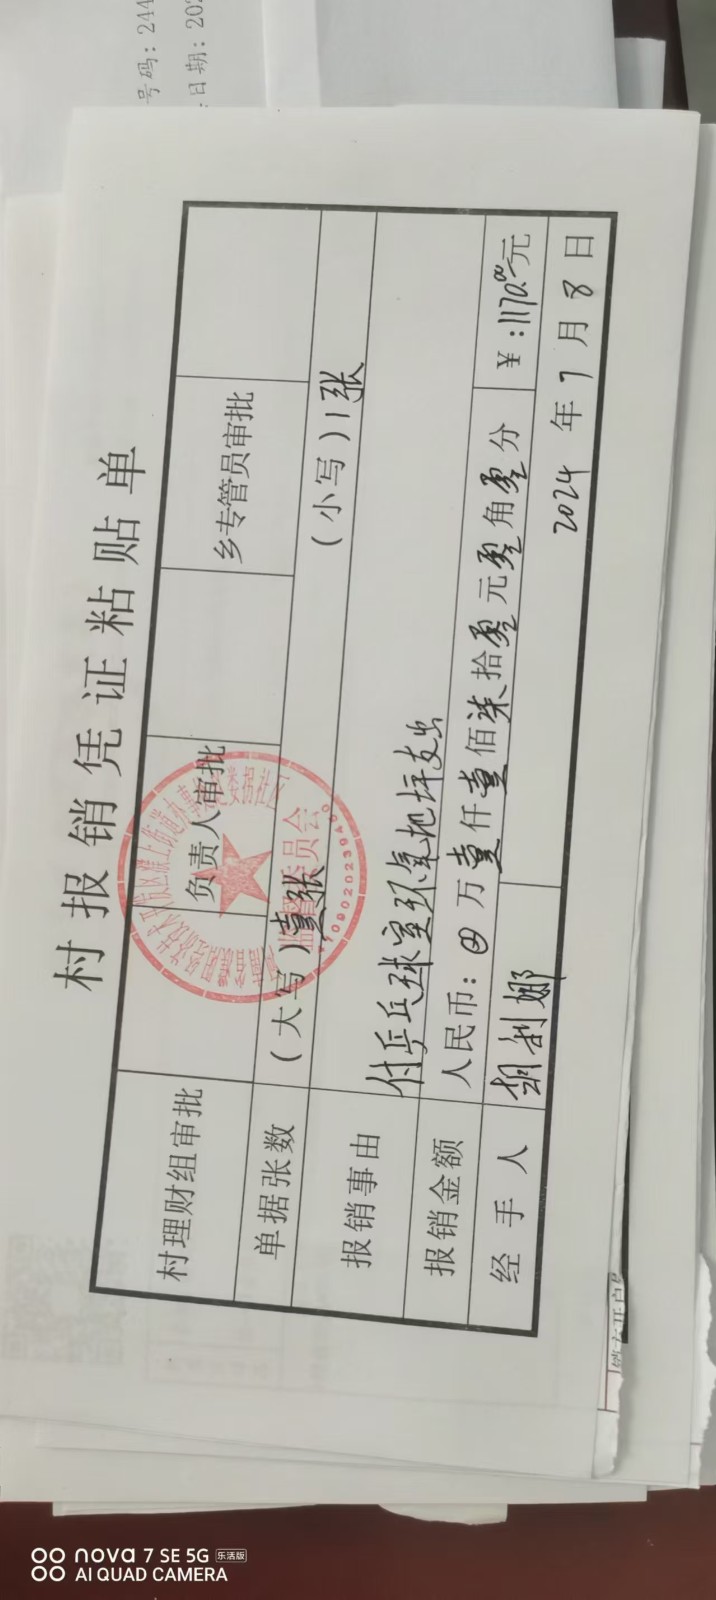 号码: 244
日期: 202
村报销凭证粘贴单
村理财组审批 负责人审批 乡专管员审批
单据张数 (大写)壹张 (小写)1张
报销事由 付乒乓球室环氧地坪支出
报销金额 人民币: ⊕万壹仟壹佰柒拾零元零角零分 ¥:1170.00元
经手人 胡利娜 2024年7月8日
监督委员会
nova 7 SE 5G 乐活版
AI QUAD CAMERA